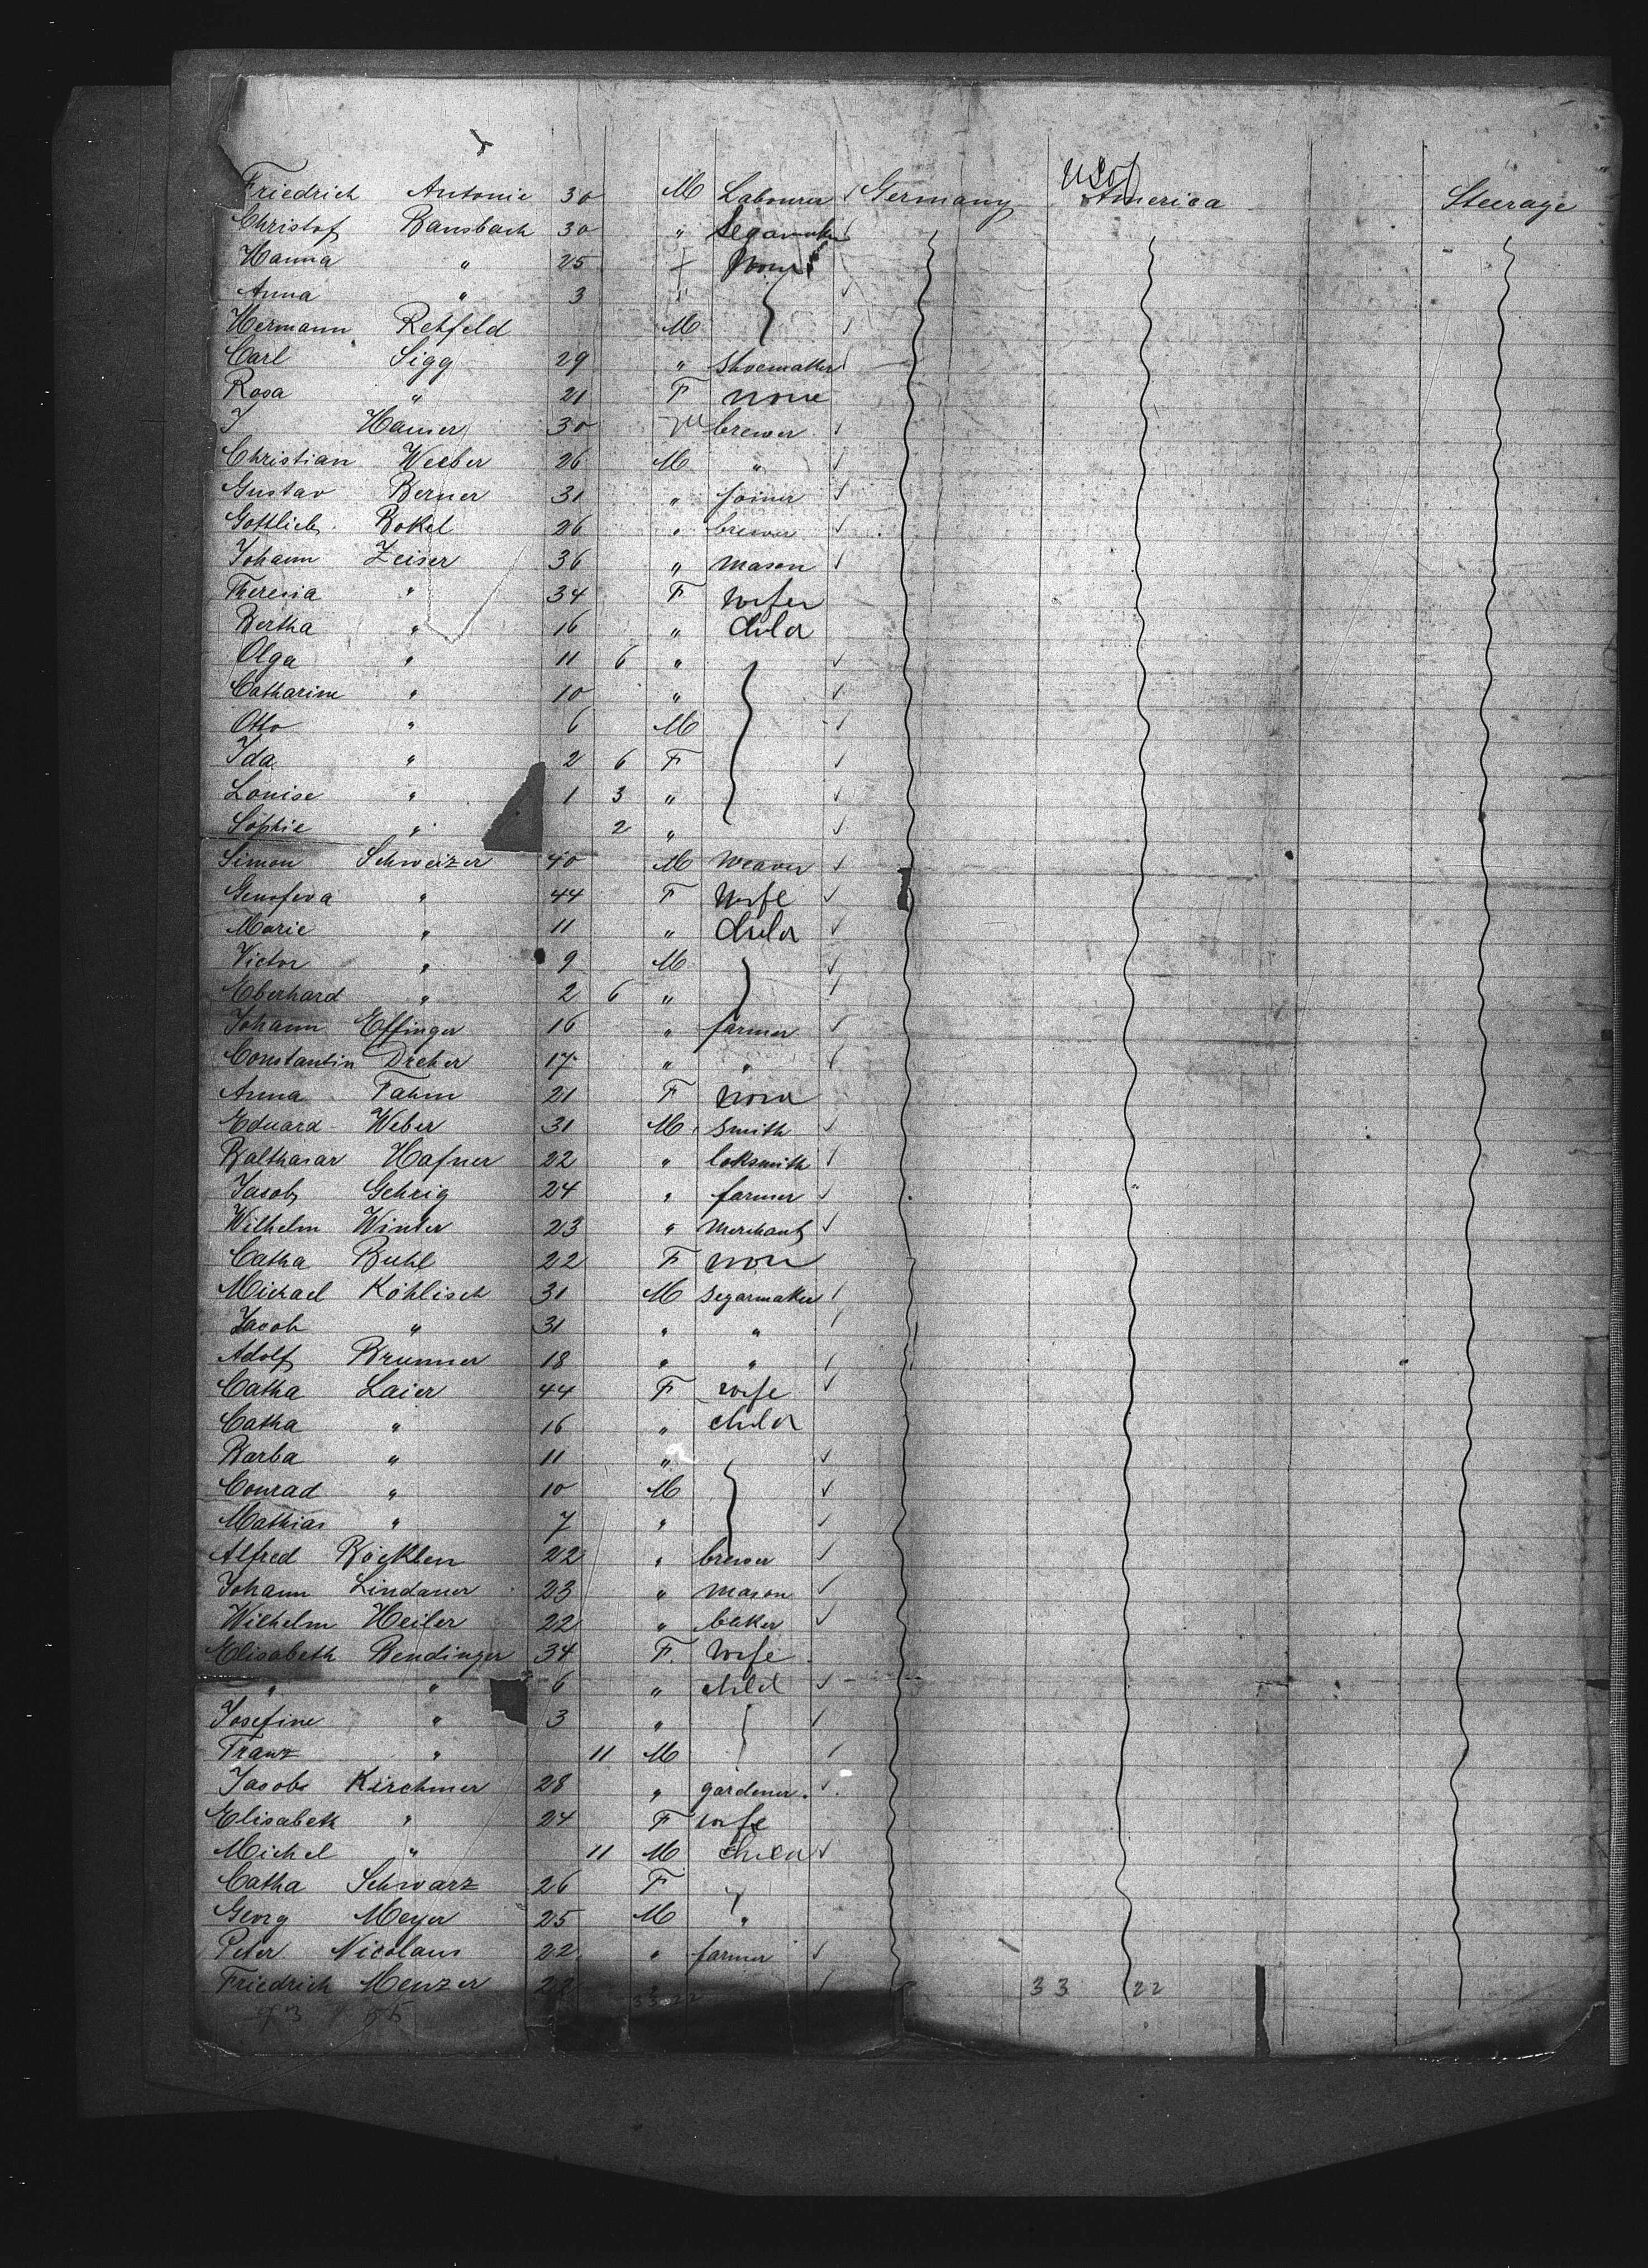 U S of
Friedrich Antonie 30 M Labourer ✓ Germany America Steerage
Christof Bansbach 30 " Segarmaker ✓
Hanna " 25 F None
Anna " 3 " ✓
Hermann Rehfeld M ✓
Carl Sigg 29 " shoemaker ✓
Rosa " 21 F none
J Hauser 30 M brewer ✓
Christian Weeber 26 M " ✓
Gustav Berner 31 " joiner ✓
Gottlieb Bokel 26 " brewer ✓
Johann Zeiser 36 " mason ✓
Theresia " 34 F wife
Bertha " 16 " child
Olga " 11 6 " ✓
Catharine " 10 " ✓
Otto " 6 M ✓
Ida " 2 6 F ✓
Louise " 1 3 " ✓
Sophie " 2 " ✓
Simon Schweizer 40 M weaver ✓
Genofeva " 44 F Wife ✓
Marie " 11 " child ✓
Victor " 9 M ✓
Eberhard " 2 6 " ✓
Johann Effinger 16 " farmer ✓
Constantin Dreher 17 " " ✓
Anna Fahm 21 F none
Eduard Weber 31 M smith ✓
Balthasar Hafner 22 " loksmith ✓
Jacob Gehrig 24 " farmer ✓
Wilhelm Winter 23 " merchant ✓
Catha Buhl 22 F non
Michael Köhlisch 31 M segarmaker ✓
Jacob " 31 " " ✓
Adolf Brunner 18 " " ✓
Catha Laier 44 F wife ✓
Catha " 16 " child
Barba " 11 " ✓
Conrad " 10 M ✓
Mathias " 7 " ✓
Alfred Böcklen 22 " brewer ✓
Johann Lindauer 23 " mason ✓
Wilhelm Heiler 22 " baker ✓
Elisabeth Bendinger 34 F. Wife
" " 6 " child ✓
Josefine " 3 " ✓
Franz " 11 M ✓
Jacob Kirchmer 28 " gardener. ✓
Elisabeth " 24 F wife
Michel " 11 M child ✓
Catha Schwarz 26 F
Georg Meyer 25 M "
Peter Nicolaus 22 " farmer ✓
Friedrich Menzer 22 " ✓ 33 22
33 22